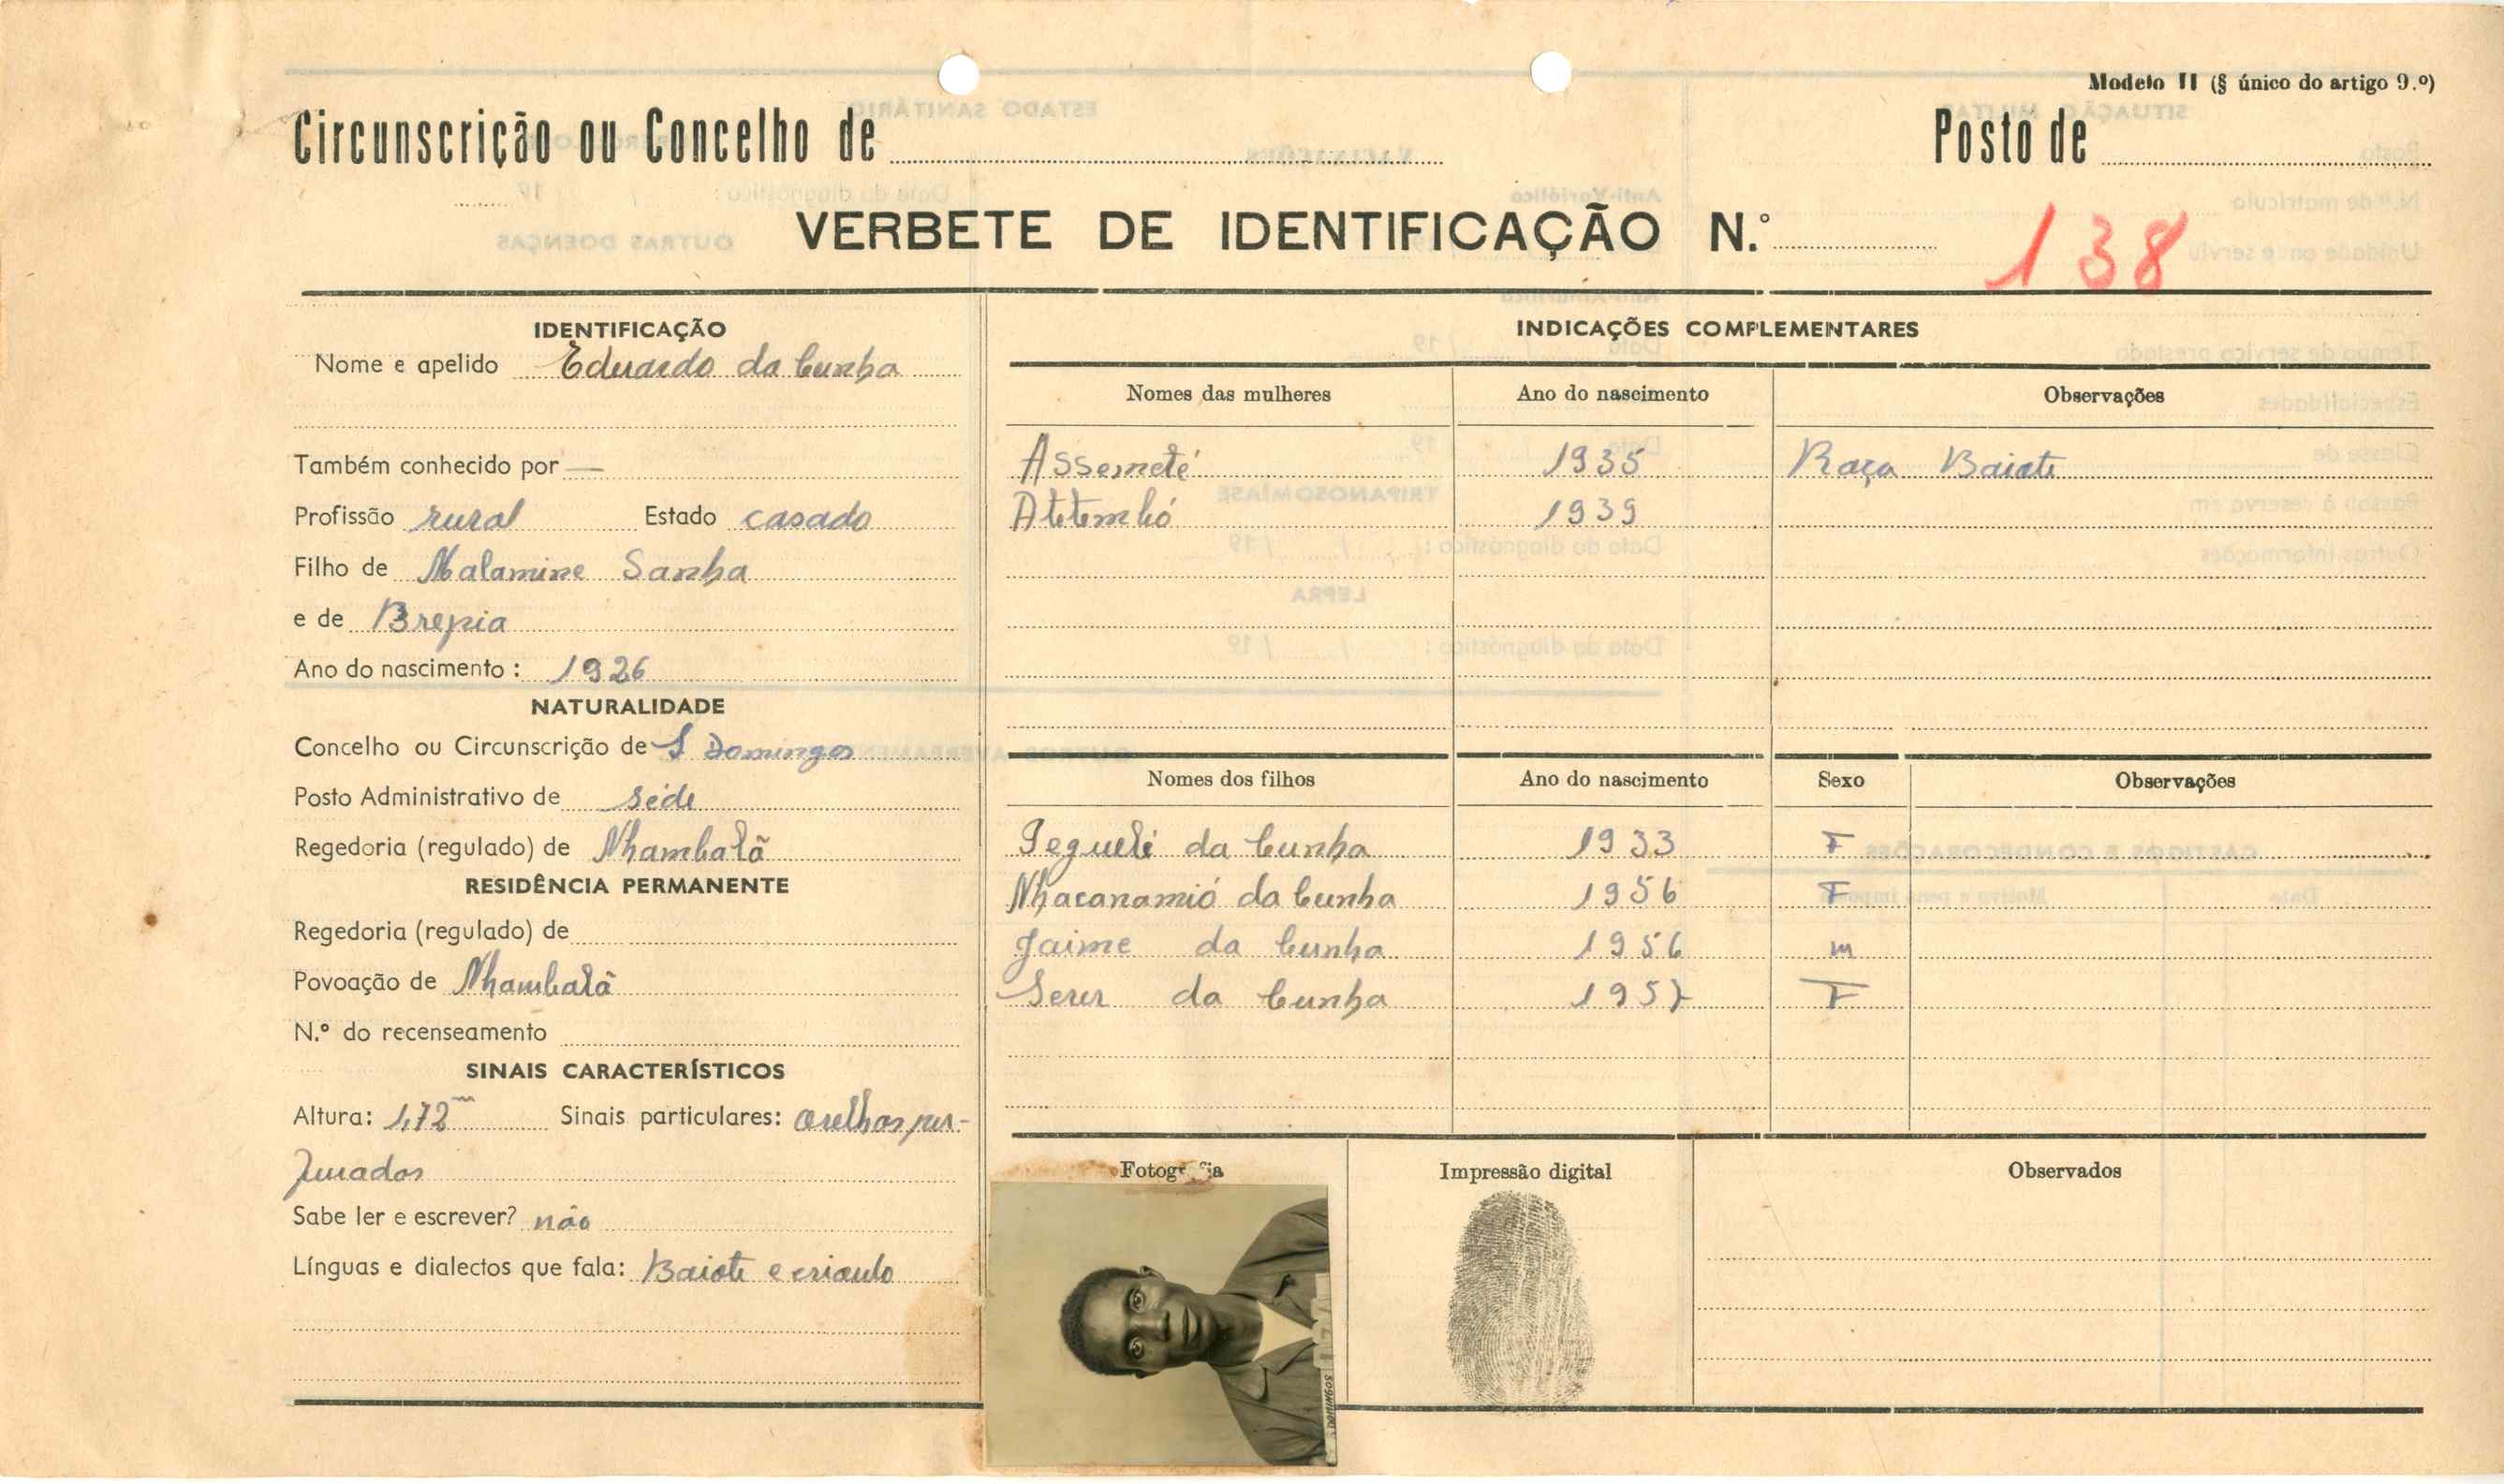 Modelo II (§ único do artigo 9.º)
Circunscrição ou Concelho de
Posto de
VERBETE DE IDENTIFICAÇÃO N.º 138
IDENTIFICAÇÃO
Nome e apelido Eduardo da Cunha
Também conhecido por —
Profissão rural Estado casado
Filho de Malamine Sanha
e de Brepia
Ano do nascimento : 1926
NATURALIDADE
Concelho ou Circunscrição de S Domingos
Posto Administrativo de Séde
Regedoria (regulado) de Nhambalã
RESIDÊNCIA PERMANENTE
Regedoria (regulado) de
Povoação de Nhambalã
N.º do recenseamento
SINAIS CARACTERÍSTICOS
Altura: 1,72 m Sinais particulares: orelhas per-
furadas
Sabe ler e escrever? não
Línguas e dialectos que fala: Baiote e crioulo
INDICAÇÕES COMPLEMENTARES
Nomes das mulheres Ano do nascimento Observações
Assemeté 1935 Raça Baiote
Atitembó 1939
Nomes dos filhos Ano do nascimento Sexo Observações
Teguelé da Cunha 1933 F
Nhacanamió da Cunha 1956 F
Jaime da Cunha 1956 m
da Cunha 1957 F
Fotografia Impressão digital Observados
DOMINGOS